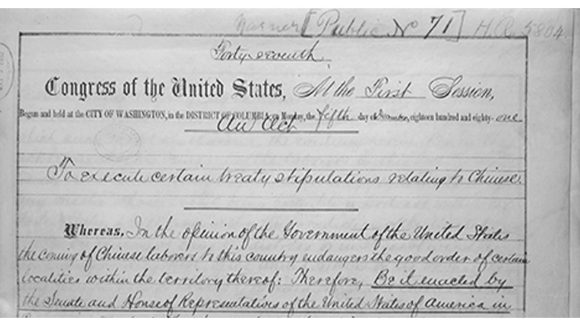 [Public No 71] H.R. 5804.
Forty-seventh
Congress of the United States, At the First Session,
Begun and held at the CITY OF WASHINGTON, in the DISTRICT OF COLUMBIA, on Monday, the fifth day of December, eighteen hundred and eighty-one
An Act
To execute certain treaty stipulations relating to Chinese.
Whereas, In the opinion of the Government of the United States
the coming of Chinese laborers to this country endangers the good order of certain
localities within the territory thereof: Therefore, Be it enacted by
the Senate and House of Representatives of the United States of America in